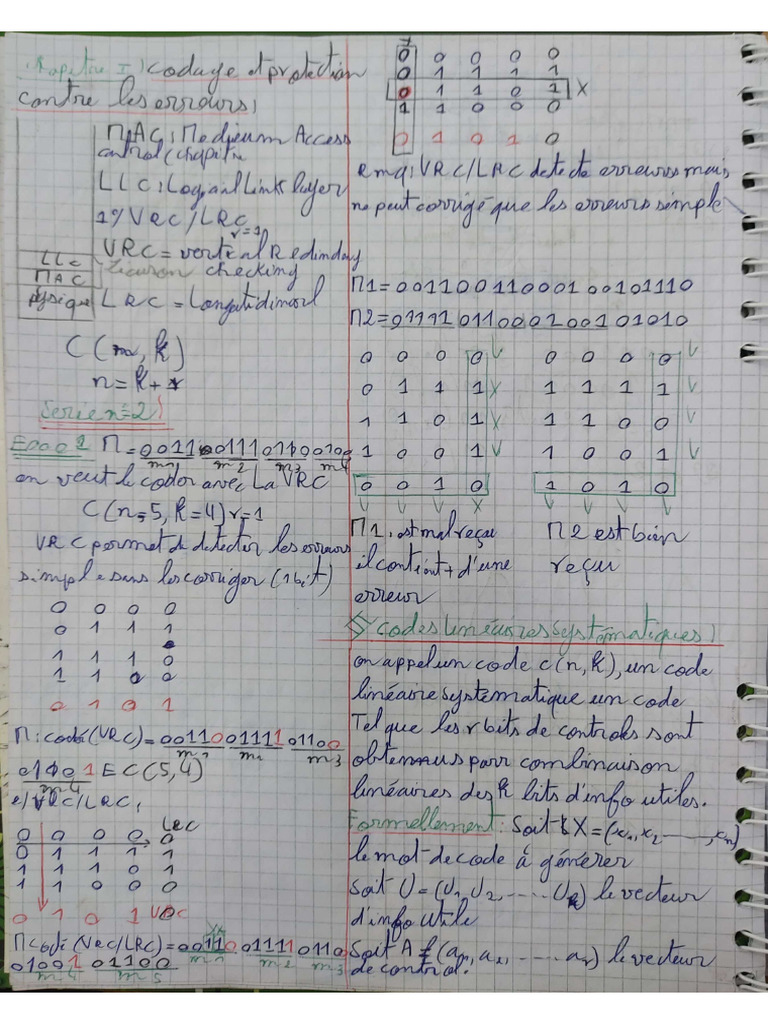 Chapitre I) codage et protection
contre les erreurs;
MAC: Medium Access
control (chapitre
LLC: Logical Link layer
1°/ VRC/LRC
r=1
VRC = vertical Redinday
checking
LLC
MAC
physique
LRC = Longatidinal
C(n, k)
n = k + r
Serie n=2)
Exo01 M = 0011 00111 01100100
m1 m2 m3 m4
on veut le coder avec la VRC
C(n=5, k=4) r=1
VRC permet de detecter les erreurs
simple sans les corriger (1bit)
0 0 0 0
0 1 1 1
1 1 1 0
1 1 0 0
0 1 0 1
M: codé (VRC) = 00110 01111 01100
m1 m2 m3
01001 E C(5,4)
m4
e/ VRC/LRC,
LRC
0 0 0 0 0
0 1 1 1 1
1 1 1 0 1
1 1 0 0 0
0 1 0 1 VRC
M codé (VRC/LRC) = 00110 01111 0110
m1 m2 m3
01001 01100
m4 m5
0 0 0 0 0
0 1 1 1 1
0 1 1 0 1 X
1 1 0 0 0
0 1 0 1 0
emq: VRC/LRC detecte erreurs mais
ne peut corrigé que les erreurs simple
M1 = 0011001100010010 1110
M2 = 01111 01100 01001 01010
0 0 0 0 V 0 0 0 0 V
0 1 1 1 X 1 1 1 1 V
1 1 0 1 X 1 1 0 0 V
1 0 0 1 V 1 0 0 1 V
0 0 1 0 1 0 1 0
V V V X V V V V
M1: est mal reçu M2 est bien
il contient + d'une reçu
erreur
Codes linéaires Systématiques)
on appel un code C(n, k), un code
linéaire systematique un code
Tel que les r bits de controls sont
obtenus parr combinaison
linéaires des k bits d'info utiles.
Formellement: Soit X = (x1, x2 ----, xn)
le mot de code à générer
Soit U = (U1, U2, ..... Uk) le vecteur
d'info utile
Soit A = (a1, a2, ..... ar) le vecteur
de control.